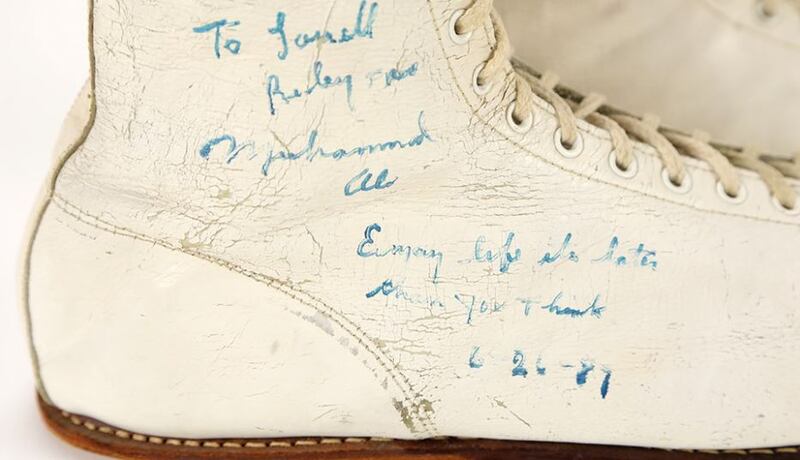 To Jarrell
Muhammad
Ali
Enjoy life its later
than you think
6-26-89